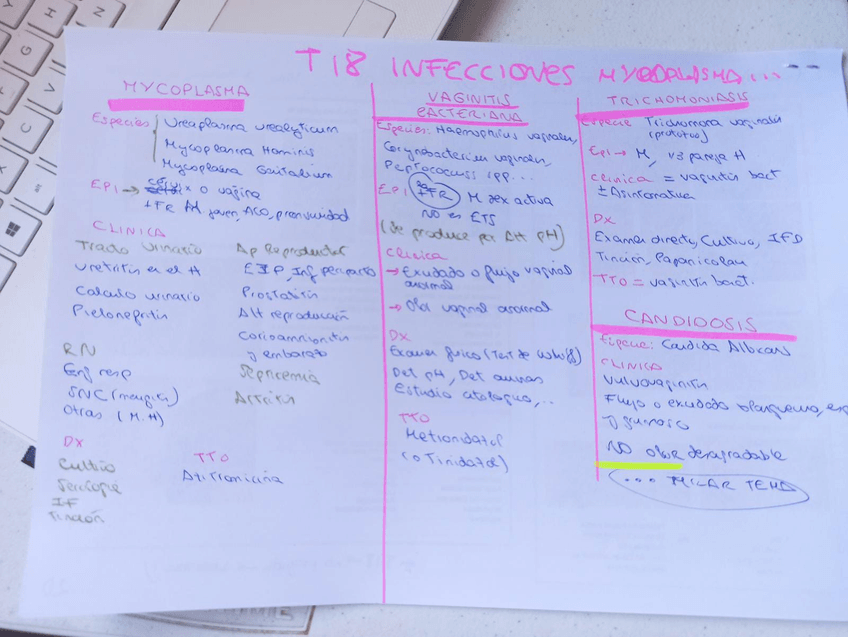 T18 INFECCIONES MYCOPLASMA...
MYCOPLASMA
Especies Ureaplasma urealyticum
Mycoplasma Hominis
Mycoplasma Genitalium
EPI → o vagina
joven, ACO, promiscuidad
CLINICA
Tracto urinario
uretritis en el H
Calculo urinario
Pielonefritis
Ap Reproductor
EIP, Inf periparto
Prostatitis
Alt reproducción
Corioamnionitis
y embarazo
Septicemia
Artritis
RN
Enf resp
SNC (meningitis)
Otras (M.H)
DX
Cultivo
Serología
IF
Tinción
TTO
Azitromicina
VAGINITIS
BACTERIANA
Especies: Haemophilus vaginalis,
Corynebacterium vaginalis,
Peptococcus spp...
EPI FR M sex activa
NO es ETS
(Se produce por alt pH)
Clinica
→ Exudado o flujo vaginal
anormal
→ Olor vaginal anormal
DX
Examen fisico (Test de Whiff)
Det pH, Det aminas
Estudio citologico,..
TTO
Metronidazol
(o Tinidazol)
TRICHOMONIASIS
Especie Trichomona vaginalis
(protozoo)
EPI → M, vs pareja H
clinica = vaginitis bact
± Asintomatica
DX
Examen directo, Cultivo, IFD
Tinción, Papanicolau
TTO = vaginitis bact.
CANDIDOSIS
Especie: Candida Albicans
CLINICA
Vulvovaginitis
Flujo o exudado blanquecino, esp
y grumoso
NO olor desagradable
... MIRAR TEMA